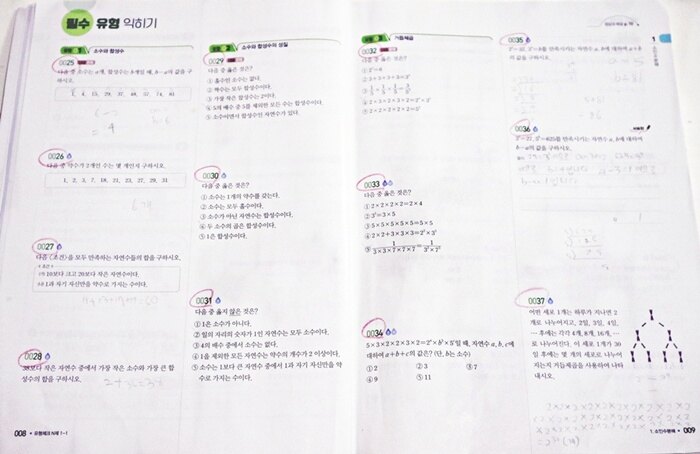 필수 유형 익히기
유형 1 소수와 합성수
0025
다음 중 소수는 a개, 합성수는 b개일 때, b-a의 값을 구
하시오.
1, 4, 15, 29, 37, 48, 57, 74, 80
= 4
0026
다음 중 약수가 2개인 수는 몇 개인지 구하시오.
1, 2, 3, 7, 18, 21, 23, 27, 29, 31
6개
0027
다음 <조건>을 모두 만족하는 자연수들의 합을 구하시오.
조건
㈎ 10보다 크고 20보다 작은 자연수이다.
㈏ 1과 자기 자신만을 약수로 가지는 수이다.
0028
38보다 작은 자연수 중에서 가장 작은 소수와 가장 큰 합
성수의 합을 구하시오.
008 유형체크 N제 1-1
유형 2 소수와 합성수의 성질
0029
다음 중 옳은 것은?
① 홀수인 소수는 없다.
② 짝수는 모두 합성수이다.
③ 가장 작은 합성수는 2이다.
④ 5의 배수 중 5를 제외한 모든 수는 합성수이다.
⑤ 소수이면서 합성수인 자연수가 있다.
0030
다음 중 옳은 것은?
① 소수는 1개의 약수를 갖는다.
② 소수는 모두 홀수이다.
③ 소수가 아닌 자연수는 합성수이다.
④ 두 소수의 곱은 합성수이다.
⑤ 1은 합성수이다.
0031
다음 중 옳지 않은 것은?
① 1은 소수가 아니다.
② 일의 자리의 숫자가 1인 자연수는 모두 소수이다.
③ 4의 배수 중에서 소수는 없다.
④ 1을 제외한 모든 자연수는 약수의 개수가 2 이상이다.
⑤ 소수는 1보다 큰 자연수 중에서 1과 자기 자신만을 약
수로 가지는 수이다.
유형 3 거듭제곱
0032
다음 중 옳은 것은?
① 2³=6
② 3+3+3+3=3⁴
④ 2×3×2×3×2=2³×3²
⑤ 2×2×2×2×2=5²
0033
다음 중 옳은 것은?
① 2×2×2×2=4²
② 3⁵=3×5
③ 5×5×5×5×5=5×5
④ 2×2+3×3×3=2²×3³
⑤ 1/(3×3×7×7×7)=1/(3²×7³)
0034
5×3×2×2×3×2=2ᵃ×bᵇ×5ᶜ일 때, 자연수 a, b, c에
대하여 a+b+c의 값은? (단, b는 소수)
① 2 ② 3 ③ 7
④ 9 ⑤ 11
0035
의 값을 구하시오.
0036
b-a의 값을 구하시오.
0037
어떤 세포 1개는 하루가 지나면 2
개로 나누어지고, 2일, 3일, 4일,
… 후에는 각각 4개, 8개, 16개, …
로 나누어진다. 이 세포 1개가 30
일 후에는 몇 개의 세포로 나누어
지는지 거듭제곱을 사용하여 나타
내시오.
1. 소인수분해 009